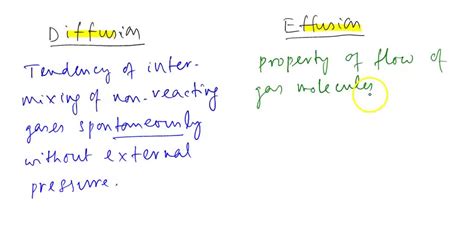 Diffusion
Tendency of inter-
mixing of non-reacting
gases spontaneously
without external
pressure.
Effusion
property of flow of
gas molecules